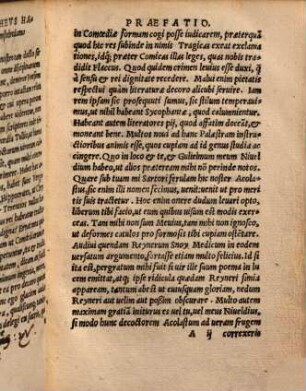 PRÆFATIO.
in Comœdiæ formam cogi posse iudicarem, præterquã
quod hic res subinde in nimis Tragicas exeat exclama
tiones, idq; præter Comicas illas leges, quas nobis tradi
dit Flaccus. Quod quidem crimen leuius esse duxi, q̃
à sensu & rei dignitate recedere. Malui enim pietatis
respectui quàm literaturæ decoro alicubi seruire. Iam
rem ipsam sic prosequuti sumus, sic stilum temperaui-
mus, ut nihil habeant Sycophantæ, quod calumnientur.
Habeant autem literatores pij, quod affatim doceãt, &
moneant bene. Multos noui ad hanc Palæstram instru
ctioribus animis esse, quos cupiam ad id genus studia ac
cingere. Quo in loco & te, & Gulielmum meum Niuel
dium habeo, ut alios præteream mihi nõ perinde notos.
Quare sub tuam mi Sartori ferulam hic noster Acola-
stus, sic enim illi nomen fecimus, uenit: uenit ut pro meri
tis suis tractetur. Hoc enim onere dudum leuari opto,
liberum tibi facto, ut eum quibus uisum est modis exer-
ceas. Tam mihi non sum Suenus, tam mihi ignosco, ut
deformes caulos præmorsos tibi cupiam ostẽtare.
Audiui quendam Reynerum Snoy Medicum in eodem
uersari argumento, fortasse etiam multo felicius. Id si
ita est, pergratum mihi fuisset uir ille suum poema in lu
cem emittat, atq; ipse ridicula quædam Reyneri simia
appaream, tantum abest ut cuiusquam gloriam, nedum
Reyneri aut uelim aut possim obscurare. Multo autem
maximam gratiã initurus es uel tu, uel meus Niueldius,
si modo hunc decoctorem Acolastum ad ueram frugem
A ij correxeris